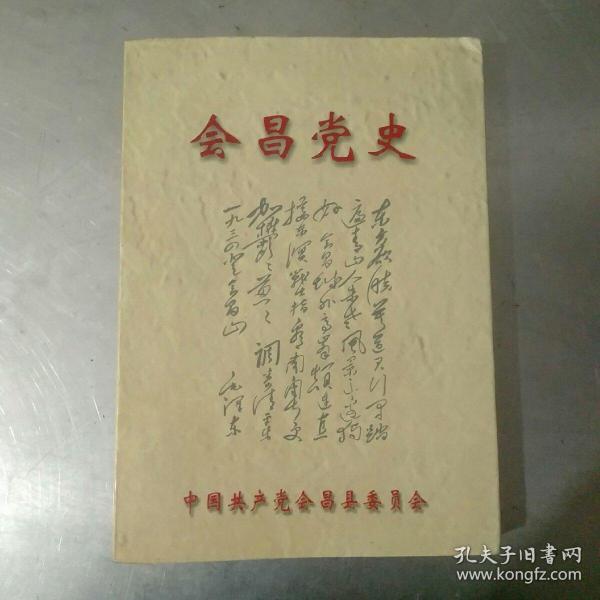 会昌党史
東方欲曉莫道君行早踏
遍青山人未老風景这边独
好 会昌城外高峯顛连直
接东溟戰士指看南粤更
加鬱〻葱〻 調寄清平乐
一九三四登会昌山 毛泽东
中国共产党会昌县委员会
孔夫子旧书网
www.kongfz.com